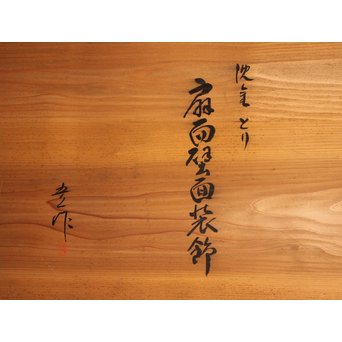 沈金 とり
扇面壁面装飾
作